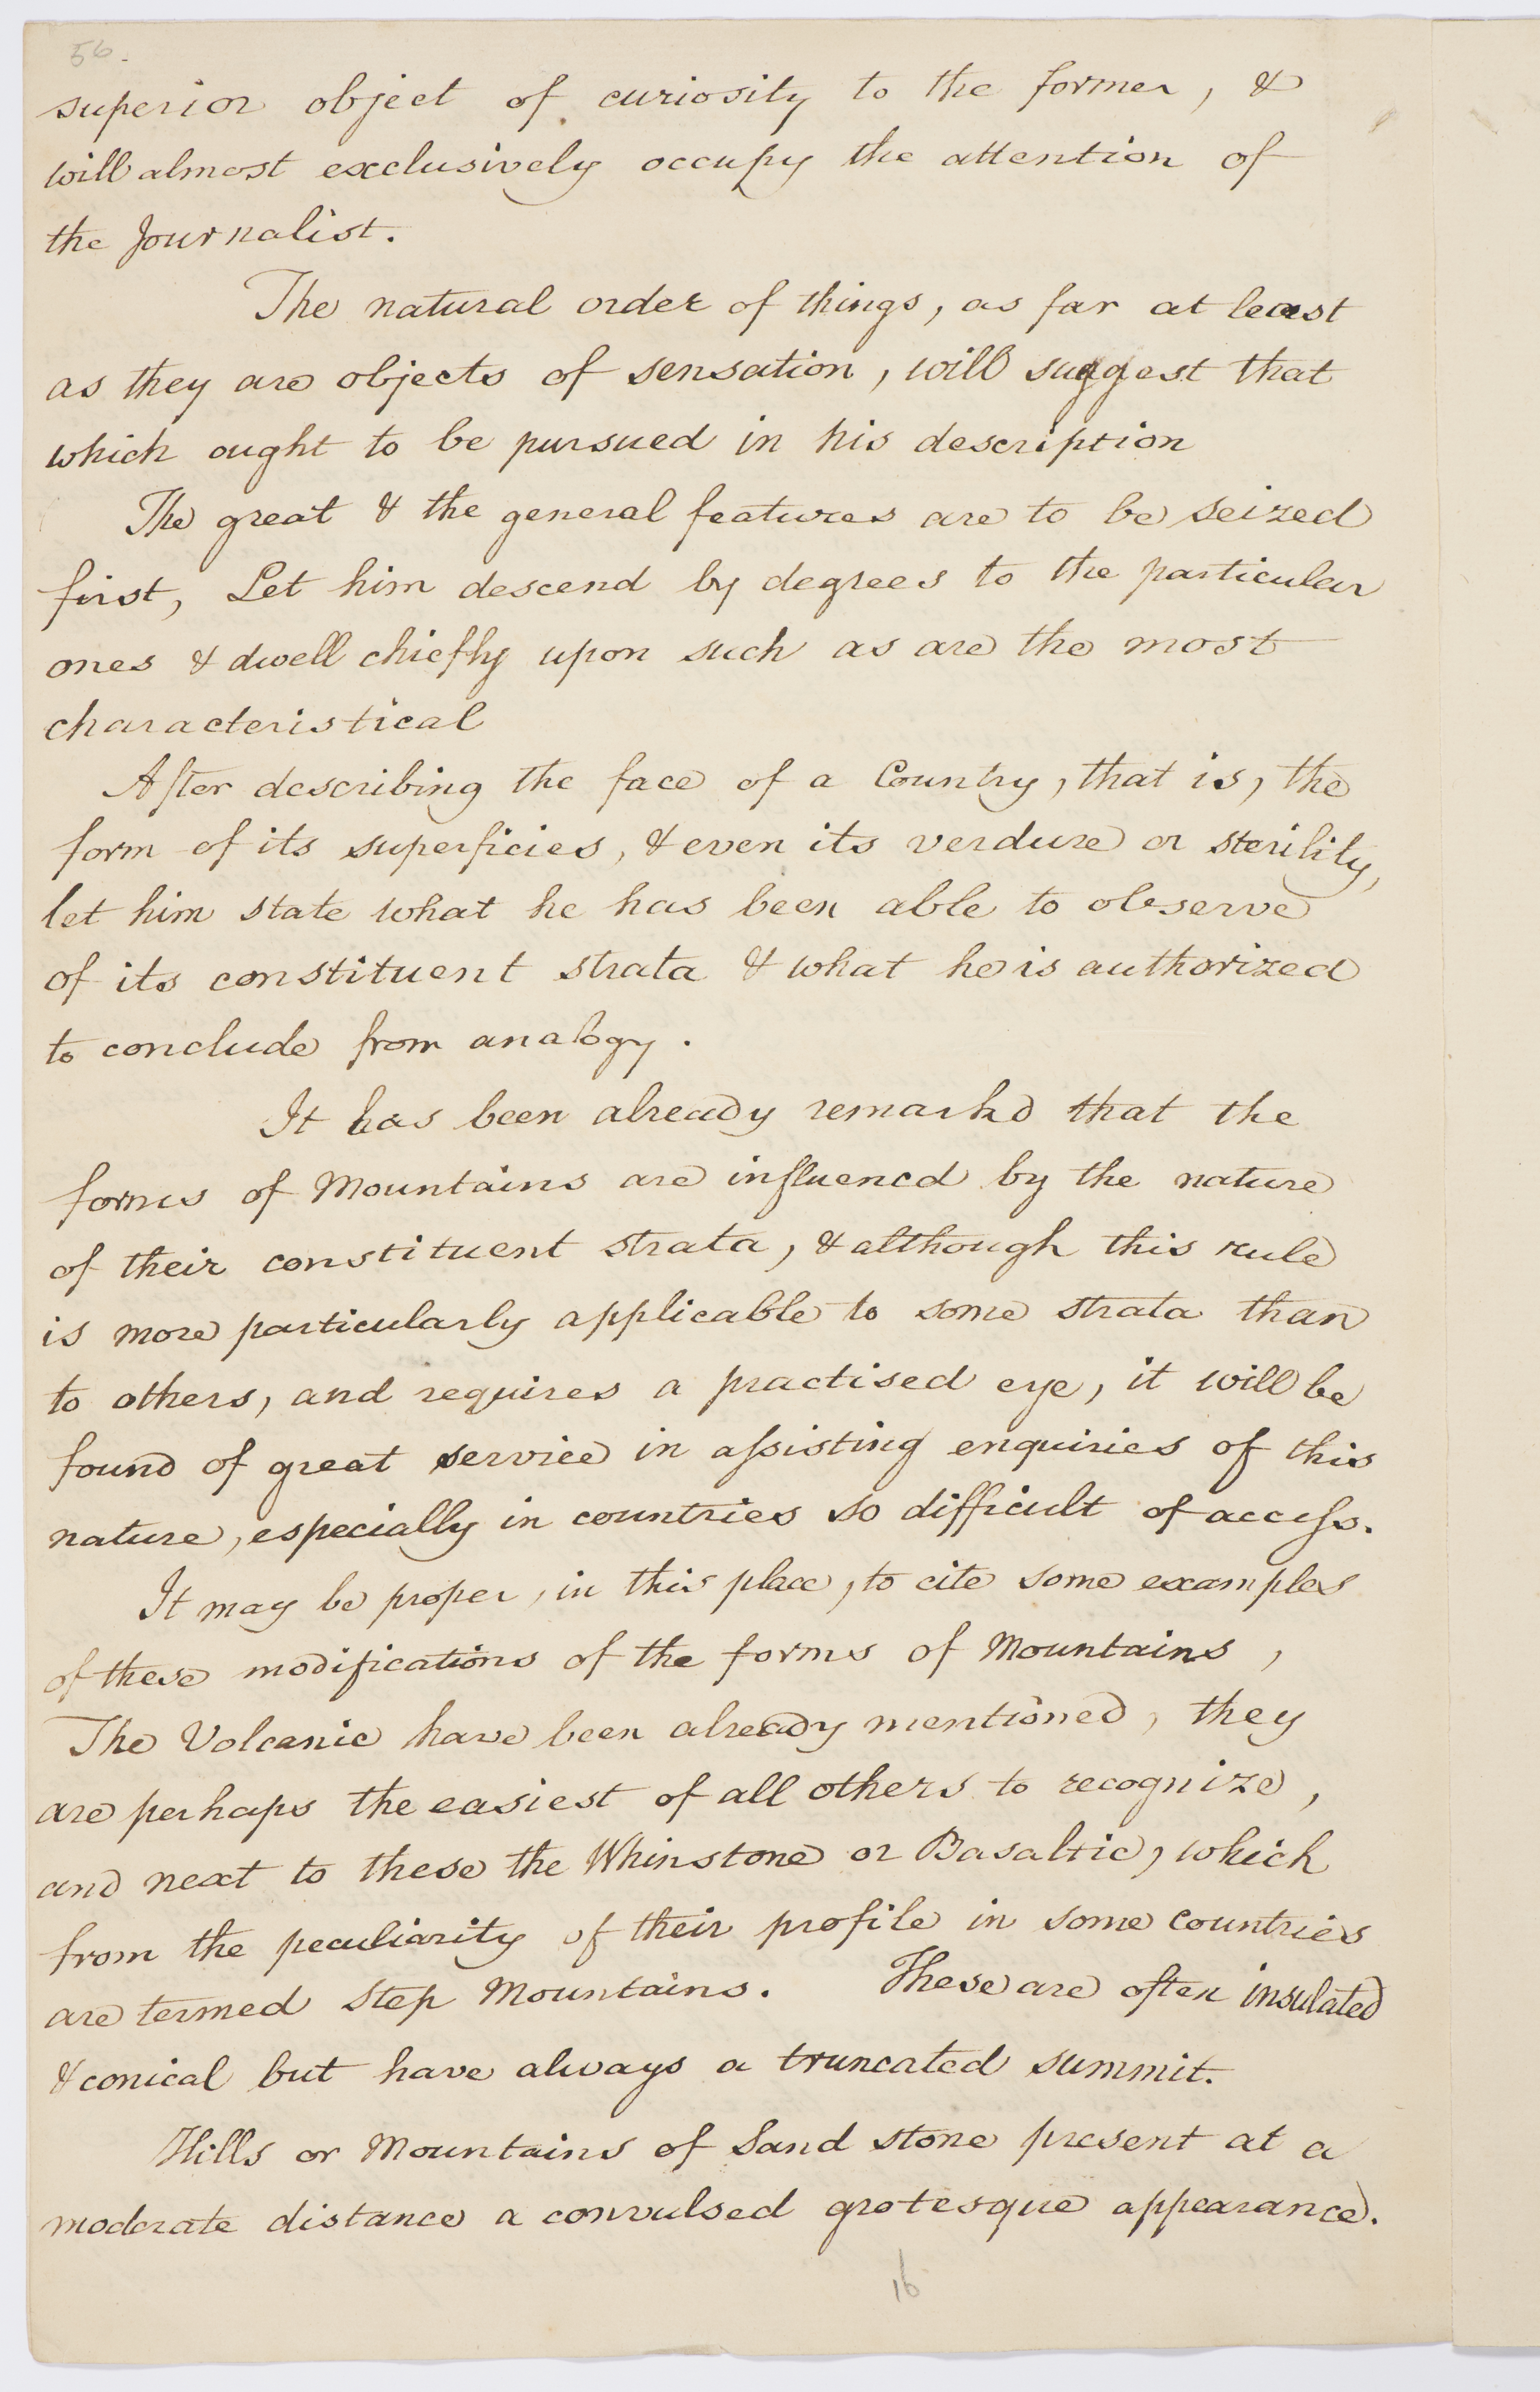 56.
superior object of curiosity to the former, &
will almost exclusively occupy the attention of
the Journalist.
The natural order of things, as far at least
as they are objects of sensation, will suggest that
which ought to be pursued in his description
The great & the general features are to be seized
first, Let him descend by degrees to the particular
ones & dwell chiefly upon such as are the most
characteristical
After describing the face of a Country, that is, the
form of its superficies, & even its verdure or sterility,
let him state what he has been able to observe
of its constituent strata & what he is authorized
to conclude from analogy.
It has been already remarkd that the
forms of Mountains are influencd by the nature
of their constituent strata, & although this rule
is more particularly applicable to some strata than
to others, and requires a practised eye, it will be
found of great service in aſsisting enquiries of this
nature, especially in countries so difficult of acceſs.
It may be proper, in this place, to cite some examples
of these modifications of the forms of Mountains,
The Volcanic have been already mentioned, they
are perhaps the easiest of all others to recognize,
and next to these the Whinstone or Basaltic, which
from the peculiarity of their profile in some Countries
are termed Step Mountains. These are often insulated
& conical but have always a truncated summit.
Hills or Mountains of Sand stone present at a
moderate distance a convulsed grotesque appearance.
16